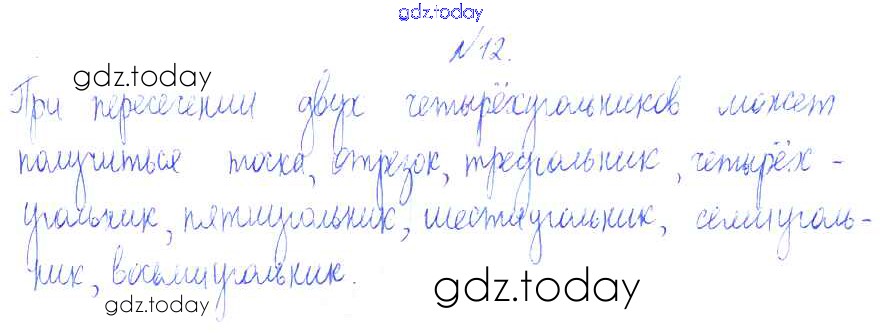 gdz.today
№12.
gdz.today
При пересечении двух четырёхугольников может
получиться точка, отрезок, треугольник, четырёх-
угольник, пятиугольник, шестиугольник, семиуголь-
ник, восьмиугольник.
gdz.today
gdz.today